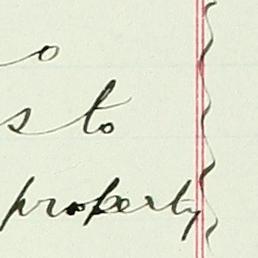 o
s to
property